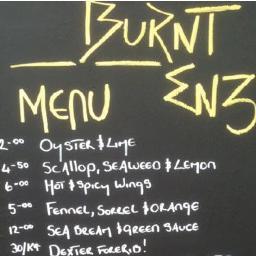 BURNT
ENZ
MENU
2-00 OYSTER & LIME
4-50 SCALLOP, SEAWEED & LEMON
6-00 HOT & SPICY WINGS
5-00 FENNEL, SORREL & ORANGE
12-00 SEA BREAM & GREEN SAUCE
30/KG DEXTER FORERIB!